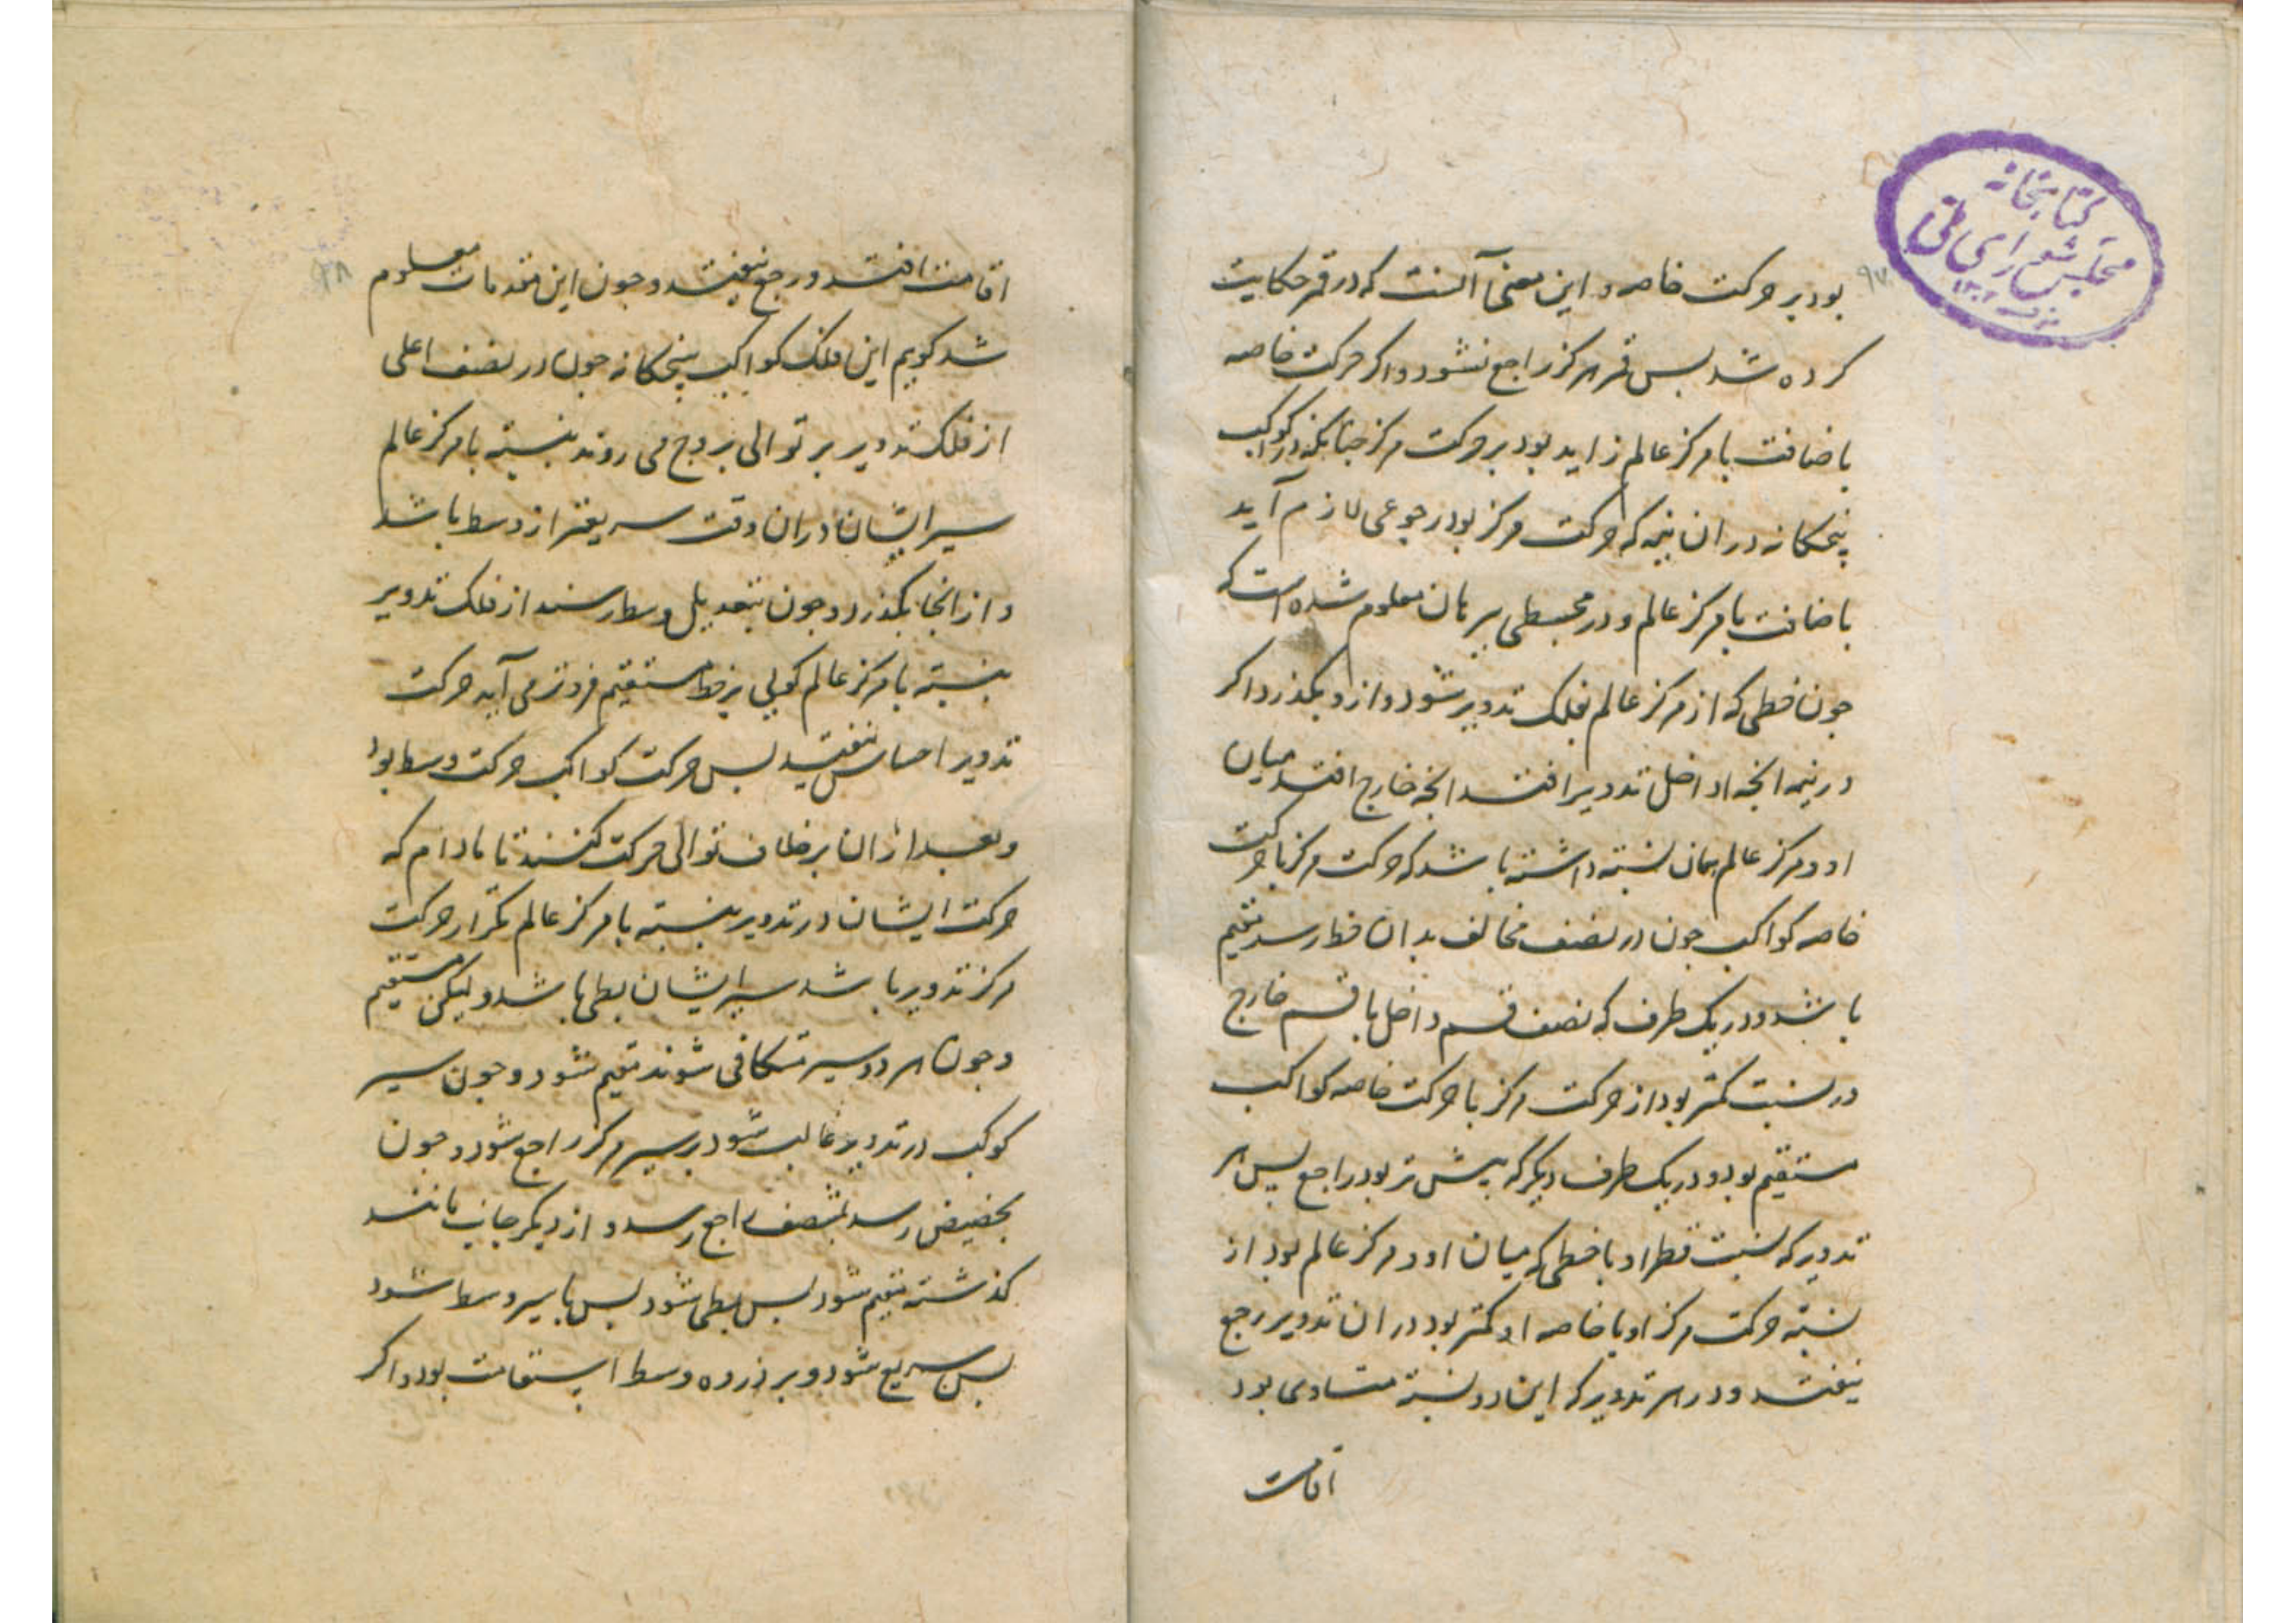 کتابخانه
مجلس شورای ملی
۹۷
بود بر حرکت خاصه و این معنی آنست که در قمر حکایت
کرده شد بس قمر هرکز راجع نشود و اکر حرکت خاصه
باضافت با مرکز عالم زاید بود بر حرکت مرکز جنانکه در کواکب
پنجکانه در ان نیمه که حرکت مرکز بود رجوعی لازم آید
باضافت با مرکز عالم و در مجسطی ببرهان معلوم شده است که
جون خطی که از مرکز عالم بفلک تدویر شود و ازو بکذرد اکر
در نیمه انچه او داخل تدویر افتد انچه خارج افتد میان
او و مرکز عالم همان نسبته داشته باشد که حرکت مرکز با حرکت
خاصه کواکب جون در نصف مخالف بدان خط رسد مقیم
باشد و در یک طرف که نصف قسم داخل با قسم خارج
در نسبت کمتر بود از حرکت مرکز با حرکت خاصه کواکب
مستقیم بود و در یک طرف دیکر که بیش تر بود راجع بس هر
تدویر که نسبت قطر او با خطی که میان او و مرکز عالم بود از
نسبته حرکت مرکز او با خاصه او کمتر بود در ان تدویر رجع
نیفتد و در هر تدویر که این دو نسبته متساوی بود
اقامت
۹۸
اقامت افتد و رجع نیفتد و جون این مقدمات معلوم
شد کویم این فلک کواکب پنجکانه جون در نصف اعلی
از فلک تدویر بر توالی بروج می روند بنسبته با مرکز عالم
سیر ایشان دران وقت سریعتر از وسط باشد
و از انجا بکذرد و جون بتعدیل وسط رسند از فلک تدویر
بنسبته با مرکز عالم کویی بر خط مستقیم فروتر می آید حرکت
تدویر احساس نیفتد بس حرکت کواکب حرکت وسط بود
و بعد ازان بر خلاف توالی حرکت کنند تا مادام که
حرکت ایشان در تدویر بنسبته با مرکز عالم کمتر از حرکت
مرکز تدویر باشد سیر ایشان بطی باشد ولیکن مستقیم
و جون هر دو سیر متکافی شوند مقیم شود و جون سیر
کوکب در تدویر غالب شود بر سیر مرکز راجع شود و جون
بحضیض رسد بمنتصف راجع رسد و از دیکر جانب مانند
کذشته مقیم شود بس بطی شود بس با سیر وسط شود
بس سریع شود و بر ذروه وسط استقامت بود و اکر